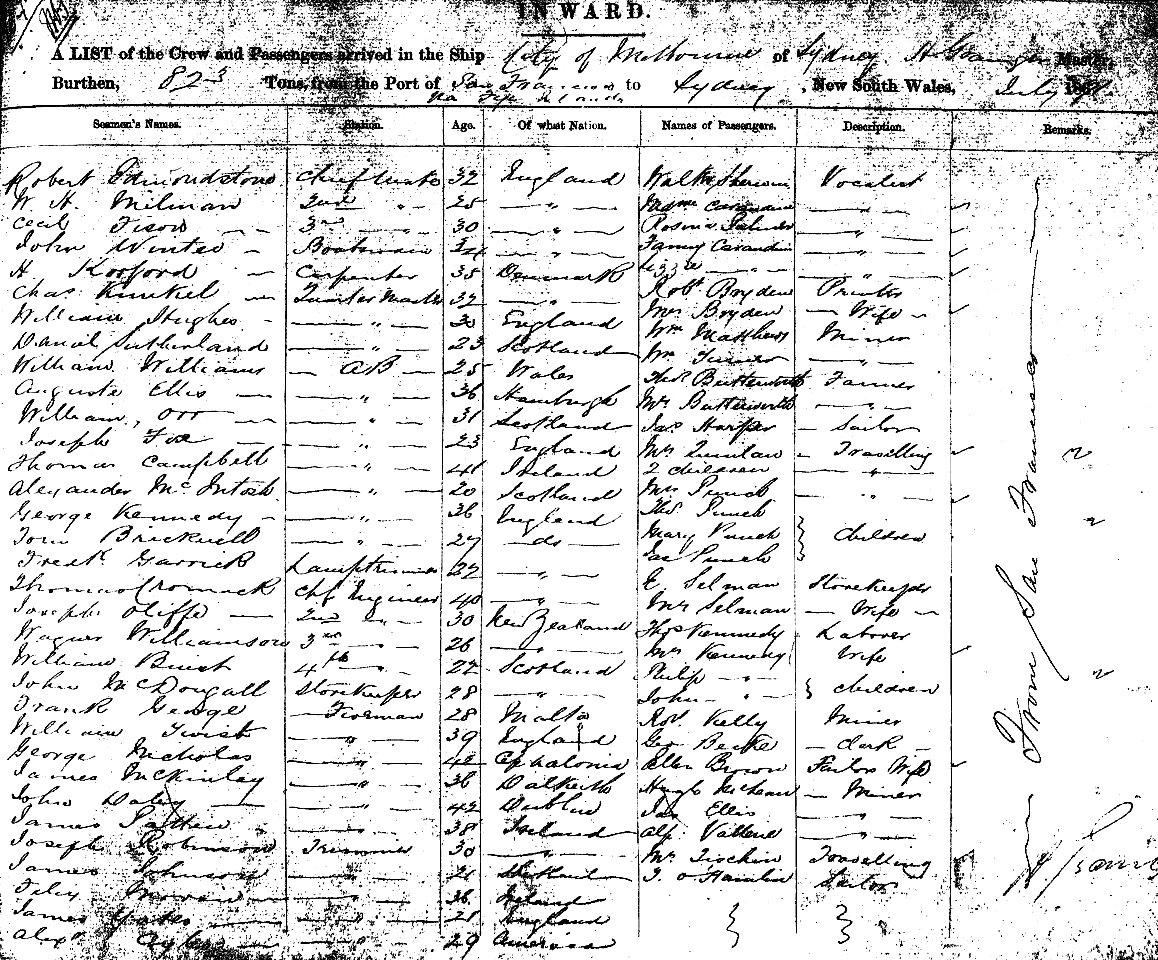 INWARD.
A LIST of the Crew and Passengers arrived in the Ship City of Melbourne of Sydney, Master,
Burthen, 823 Tons, from the Port of San Francisco to Sydney, New South Wales, July
via Fiji Islands
Seamen's Names. Station. Age. Of what Nation. Names of Passengers. Description. Remarks.
Robert Edmondstone Chief 32 England Walter Sherwin Vocalist
W. H. Milman 2nd " 25 " Mdme Carandini "
Cecil 3rd " 30 " Rosina Palmer "
John Winter Boatswain 34 " Fanny Carandini "
H. Korford Carpenter 35 Denmark Lizzie " "
Chas Kunkel Quarter Master 32 " Robt Bryden Printer
William Hughes " 30 England Mrs Bryden Wife
Daniel Sutherland " 23 Scotland Wm Matthews Miner
William Williams AB 25 Wales Wm Turner "
Auguste Ellis " 36 Hamburgh Thos Butterworth Farmer
William Orr " 31 Scotland Mrs Butterworth "
Joseph Fox " 23 England Jas Harper Sailor
Thomas Campbell " 41 Ireland Mrs Quinlan Travelling
2 children "
Alexander McIntosh " 20 Scotland Mrs Punch "
George Kennedy " 36 England Thos Punch
Tom Bricknell " 27 do Mary Punch } children
Fredk Garrick Lamptrimmer 22 " Punch
Thomas Cromack Chf Engineer 40 " E. Selman Storekeeper
Joseph Oliffe 2nd " 30 New Zealand Mrs Selman Wife
Wagner Williamson 3rd " 26 " Thos Kennedy Labourer
William Bush 4th " 22 Scotland Mrs Kennedy Wife
Philip "
John McDougall Storekeeper 28 " John " } children
Frank George Fireman 28 Malta Robt Kelly Miner
William Twist " 39 England Geo Becke clerk
George Nicholas " 42 Cephalonia Ellen Brown Sailors Wife
James McKinley " 36 Dalkeith Hugh McLean Miner
John Daley " 42 Dublin Jas Ellis "
James Patten " 38 Ireland Alf "
Joseph Robinson Trimmer 30 " Mr Travelling
James Johnson " 21 Sailor
" 36 Ireland
James Yates " 21 England
Alexr " 29 America
From San Francisco